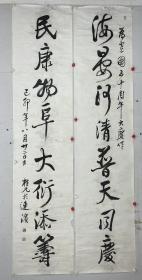 為祖國五十周年大慶作
海晏河清普天同慶
民康物阜大衍添籌
己卯年八月廿二日